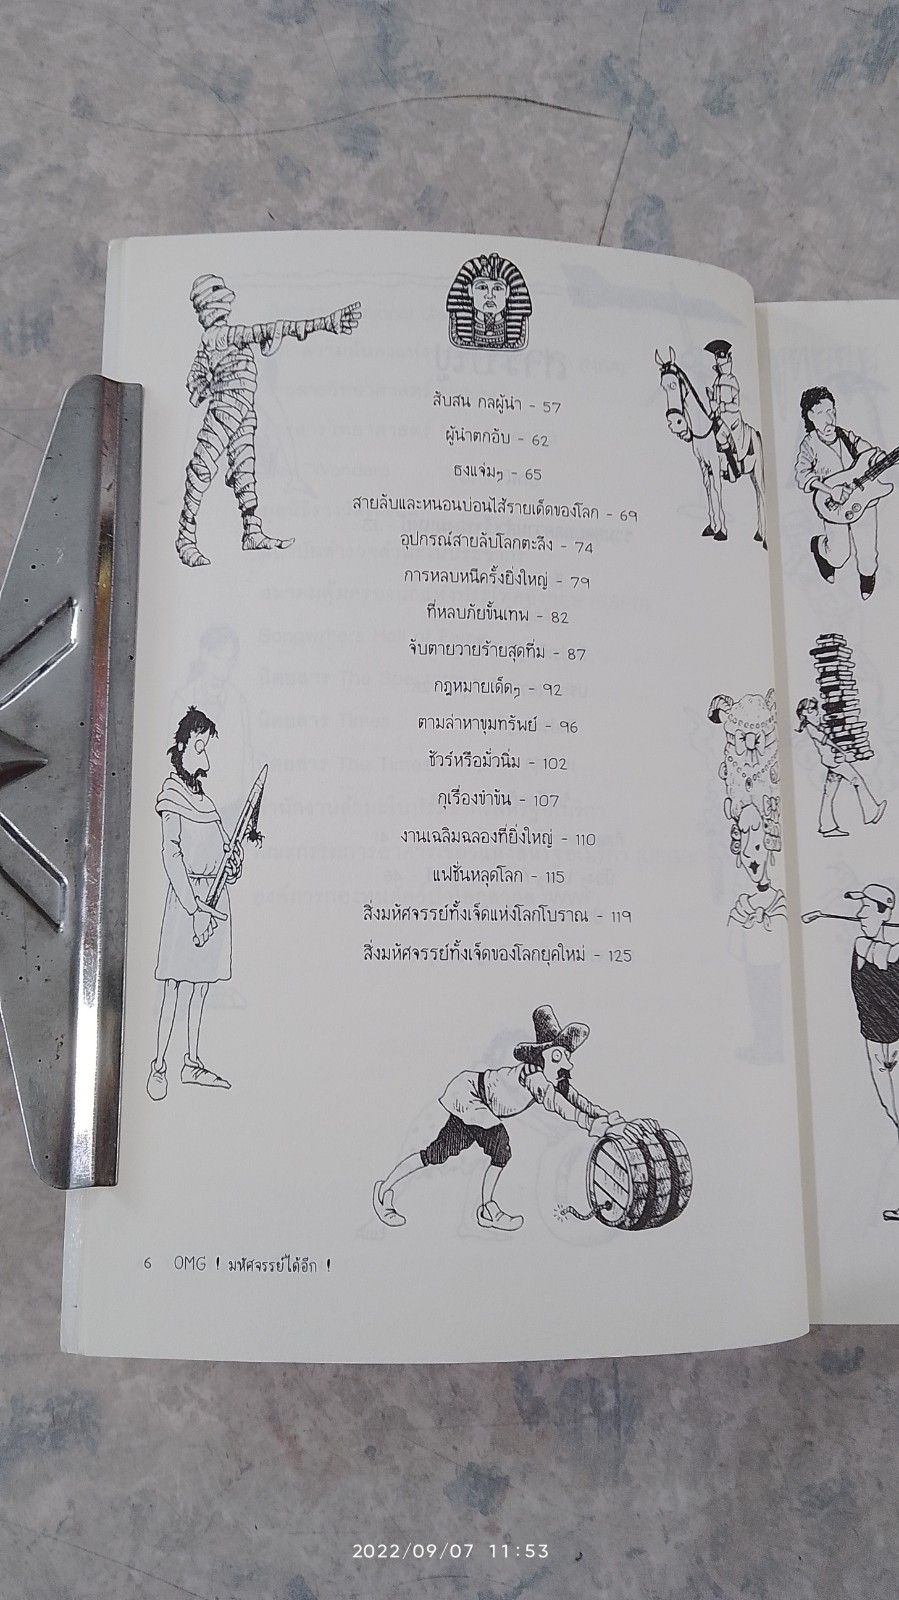 สับสน กลผู้นำ - 57
ผู้นำตกอับ - 62
ธงแจ่มๆ - 65
สายลับและหนอนบ่อนไส้รายเด็ดของโลก - 69
อุปกรณ์สายลับโลกตะลึง - 74
การหลบหนีครั้งยิ่งใหญ่ - 79
ที่หลบภัยขั้นเทพ - 82
จับตายวายร้ายสุดที่ม - 87
กฎหมายเด็ดๆ - 92
ตามล่าหาขุมทรัพย์ - 96
ชัวร์หรือมั่วนิ่ม - 102
กุเรื่องขำขัน - 107
งานเฉลิมฉลองที่ยิ่งใหญ่ - 110
แฟชั่นหลุดโลก - 115
สิ่งมหัศจรรย์ทั้งเจ็ดแห่งโลกโบราณ - 119
สิ่งมหัศจรรย์ทั้งเจ็ดของโลกยุคใหม่ - 125
6 OMG ! มหัศจรรย์ได้อีก !
2022/09/07 11:53